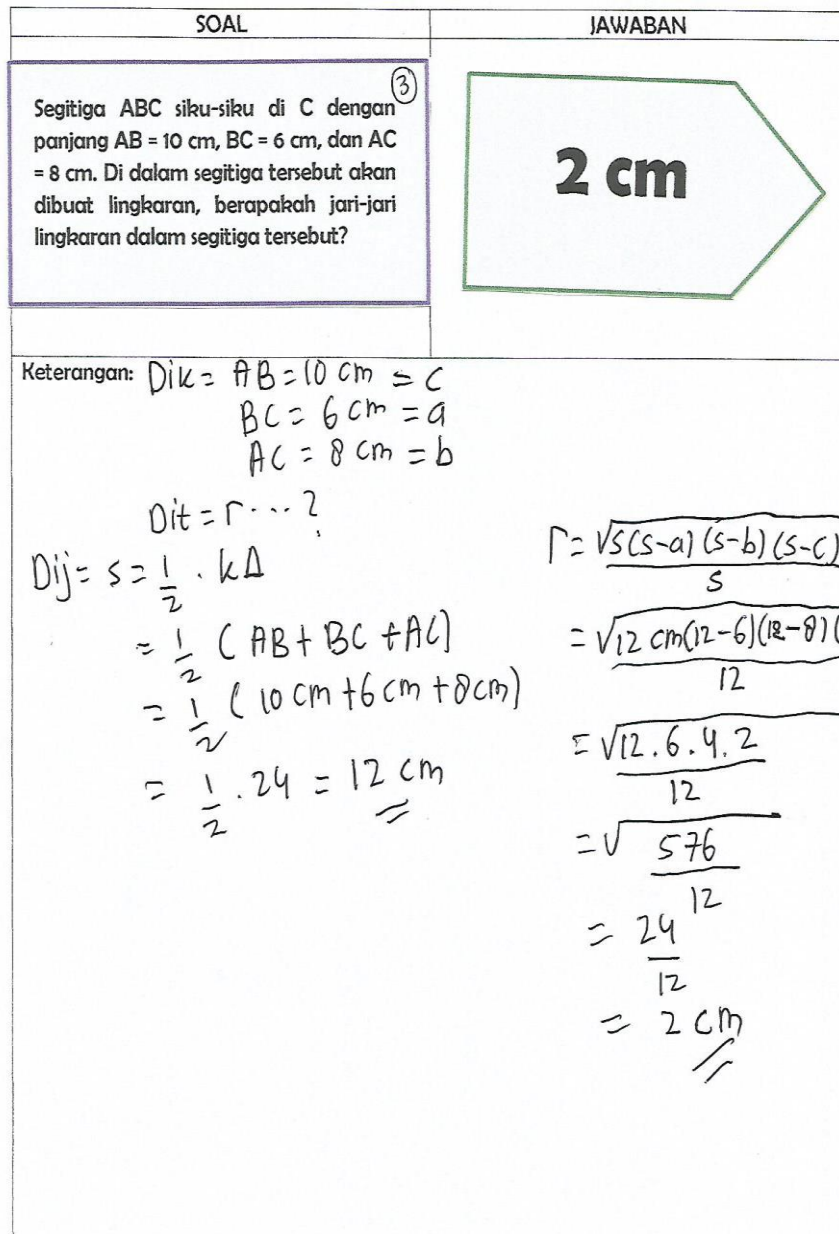 SOAL
JAWABAN
3
Segitiga ABC siku-siku di C dengan
panjang AB = 10 cm, BC = 6 cm, dan AC
= 8 cm. Di dalam segitiga tersebut akan
dibuat lingkaran, berapakah jari-jari
lingkaran dalam segitiga tersebut?
2 cm
Keterangan: Dik = AB = 10 cm = c
BC = 6 cm = a
AC = 8 cm = b
Dit = r ... ?
Dij = s = 1/2 . kΔ
= 1/2 (AB + BC + AC)
= 1/2 (10 cm + 6 cm + 8 cm)
= 1/2 . 24 = 12 cm
r = √s(s-a)(s-b)(s-c) / s
= √12 cm(12-6)(12-8)( / 12
= √12.6.4.2 / 12
= √576 / 12
= 24/12
= 2 cm